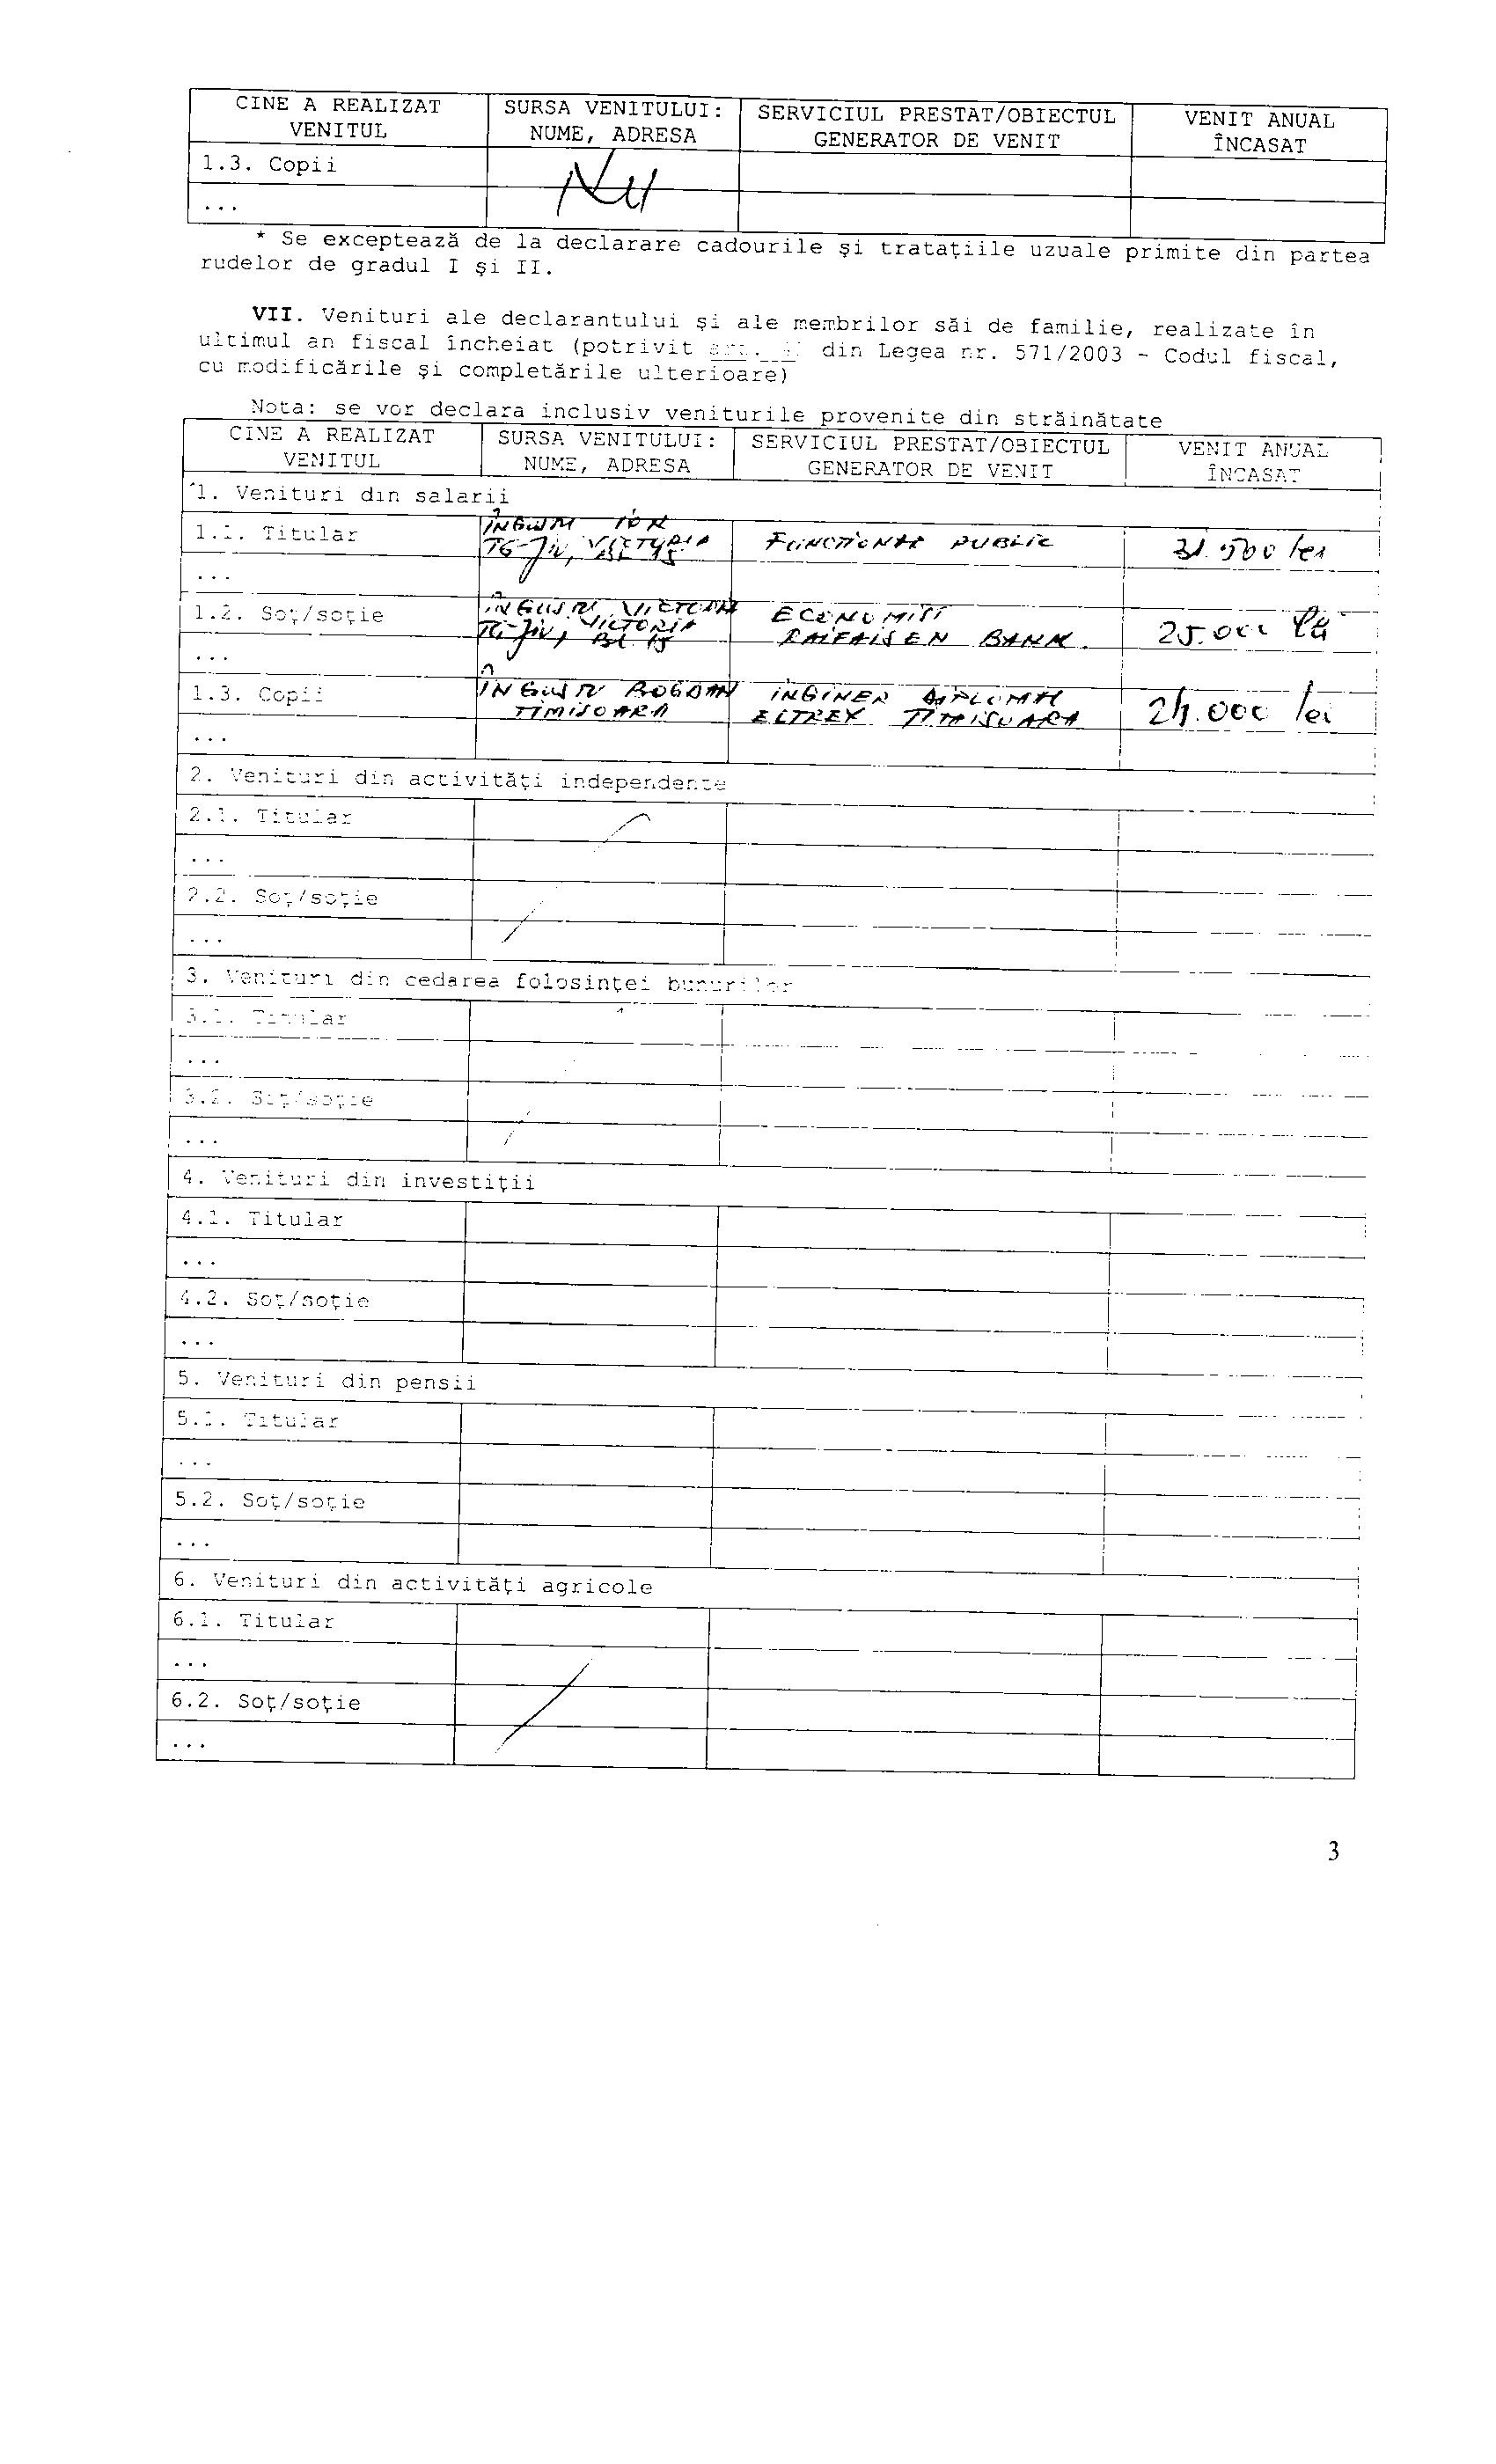 CINE A REALIZAT SURSA VENITULUI: SERVICIUL PRESTAT/OBIECTUL VENIT ANUAL
VENITUL NUME, ADRESA GENERATOR DE VENIT ÎNCASAT
1.3. Copii
Nu
...
* Se exceptează de la declarare cadourile şi trataţiile uzuale primite din partea
rudelor de gradul I şi II.
VII. Venituri ale declarantului şi ale membrilor săi de familie, realizate în
ultimul an fiscal încheiat (potrivit art. din Legea nr. 571/2003 - Codul fiscal,
cu modificările şi completările ulterioare)
Nota: se vor declara inclusiv veniturile provenite din străinătate
CINE A REALIZAT SURSA VENITULUI: SERVICIUL PRESTAT/OBIECTUL VENIT ANUAL
VENITUL NUME, ADRESA GENERATOR DE VENIT ÎNCASAT
1. Venituri din salarii
ION
1.1. Titular TG-JIU, PUBLIC 31.500 lei
...
1.2. Soţ/soţie ECONOMIST
TG-JIU, VICTORIA BL 15 RAIFAISEN BANK. 25.000
...
1.3. Copii BOGDAN INGINER 24.000 lei
TIMISOARA ELTREX TIMISOARA
...
2. Venituri din activităţi independente
2.1. Titular
...
2.2. Soţ/soţie
...
3. Venituri din cedarea folosinţei bunurilor
3.1. Titular
...
3.2. Soţ/soţie
...
4. Venituri din investiţii
4.1. Titular
...
4.2. Soţ/soţie
...
5. Venituri din pensii
5.1. Titular
...
5.2. Soţ/soţie
...
6. Venituri din activităţi agricole
6.1. Titular
...
6.2. Soţ/soţie
...
3